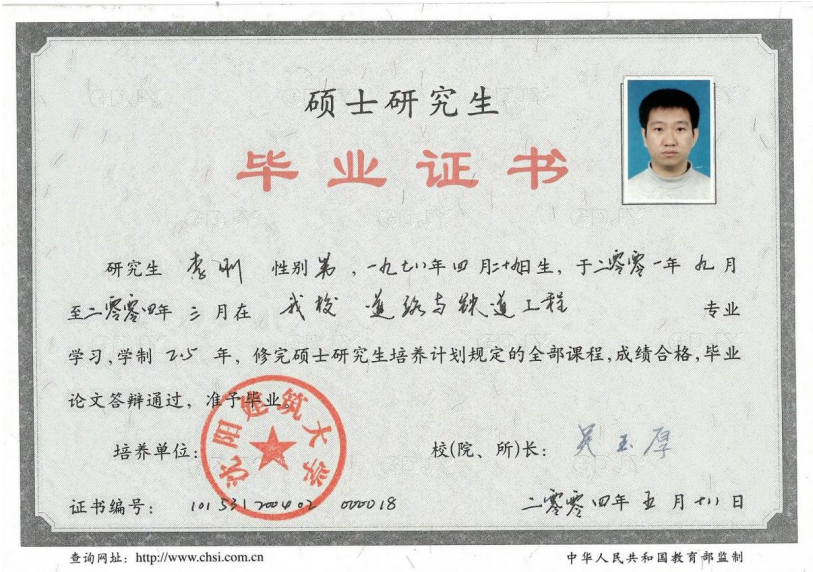 硕士研究生
毕业证书
研究生 李刚 性别 男，一九七八年 四 月二十九日生，于二零零一年 九 月
至二零零四年 三 月在 我校 道路与铁道工程 专业
学习，学制 2.5 年，修完硕士研究生培养计划规定的全部课程，成绩合格，毕业
论文答辩通过，准予毕业。
培养单位：沈阳建筑大学 校(院、所)长：吴玉厚
证书编号： 101531200402 000018 二零零四年 五 月 十八 日
查询网址：http://www.chsi.com.cn 中华人民共和国教育部监制